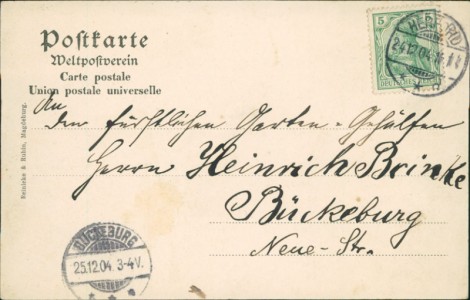 Postkarte
Weltpostverein
Carte postale
Union postale universelle
5
HERFORD
24.12.04
DEUTSCHES
An
den fürstlichen Garten-Gehülfen
Herrn Heinrich Brinke
Bückeburg
Neue-Str.
BÜCKEBURG
25.12.04. 3-4V.
Reinicke & Rubin, Magdeburg.